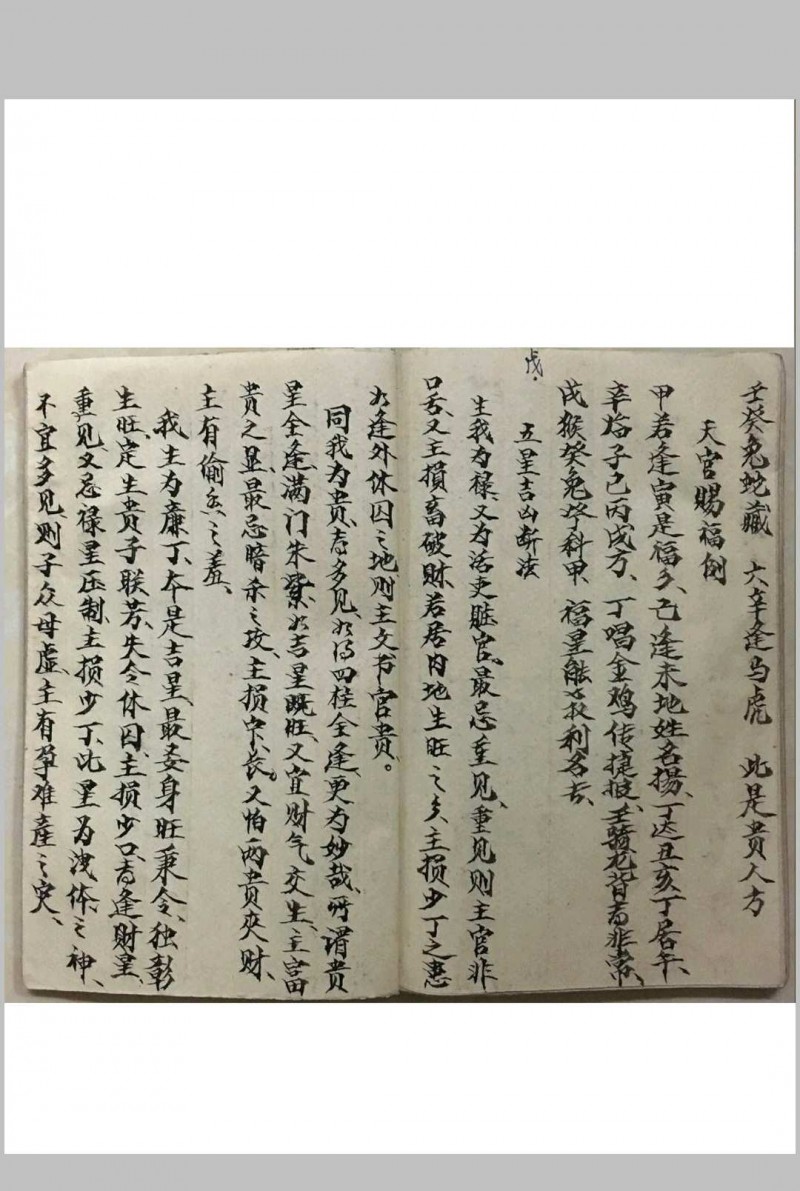 壬癸兔蛇藏　六辛逢马虎　此是貴人方
天官赐福例
甲若逢寅是福乡、己逢未地姓名揚、丁达丑亥丁居午、
辛临子己丙戌方、丁唱金鸡传捷报、壬骑龙背喜非常、
戊猴癸兔登科甲、福星能获利名去、
戊.
五星吉凶断法
生我为禄、又为活吏脏官、最忌重见、重见则主官非
口舌、又主損畜破财、若居内地生旺之乡、主损少丁之患
如逢外休囚之地则主文书官貴。
同我为貴、喜多见、如得四柱全逢、更为妙哉、所谓貴
星全逢、满门朱紫、如吉星既旺、又宜财气交生、主富
貴之显、最忌暗杀之攻、主损宗长。又怕两貴夾财、
主有偷之羞、
我生为廉丁、本是吉星、最妥身旺秉令、独彰
生旺、定生貴子联芳、失令休囚、主损少口、喜逢财星、
重见又忌禄星压制、主损少丁、此星为洩体之神、
不宜多见、则子众母虚、主有孕难産之灾、